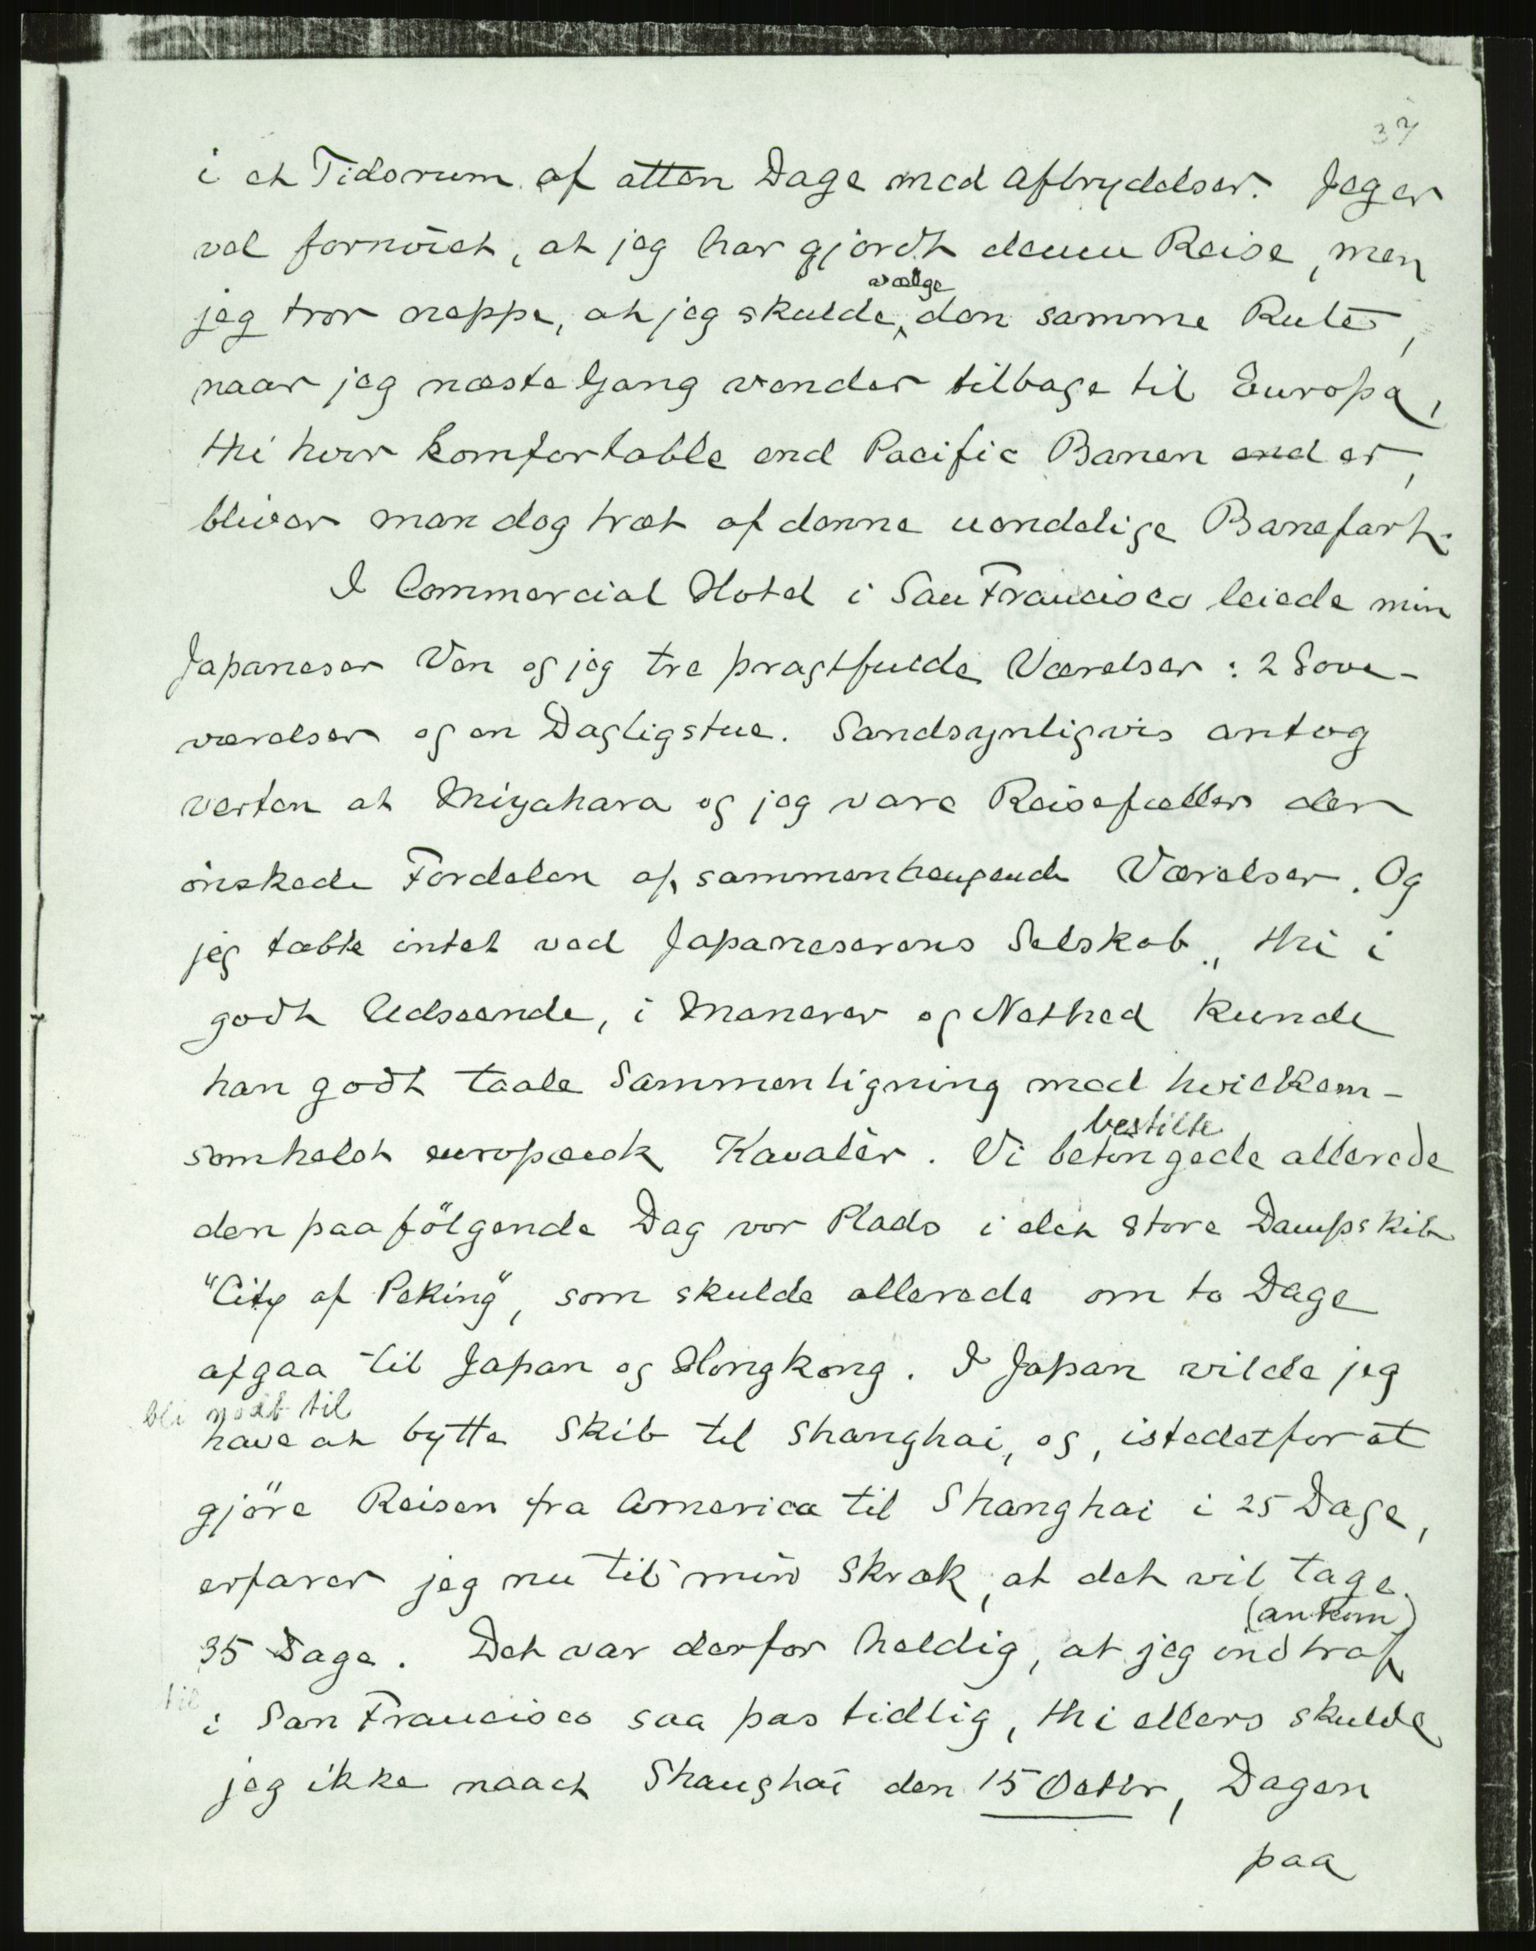 37
i et Tidsrum af atten Dage med Afbrydelser. Jeg er
vel fornöiet, at jeg har gjordt denne Reise, men
vælge
jeg tror neppe, at jeg skulde den samme Rute,
naar jeg næste Gang vender tilbage til Europa,
thi hvor komfortable end Pacific Banen end er,
bliver man dog træt af denne uendelige Banefart.
I Commercial Hotel i San Francisco leiede min
Japaneser Ven og jeg tre pragtfulde Værelser: 2 Sove-
værelser og en Dagligstue. Sandsynligvis antog
verten at Miyahara og jeg vare Reisefæller der
önskede Fordelen af sammenhengende Værelser. Og
jeg tabte intet ved Japaneserens Selskab, thi i
godt Udseende, i Manerer og Nethed kunde
han godt taale Sammenligning med hvilkem-
bestilte
somhelst europæisk Kavalér. Vi betingede allerede
den paafölgende Dag vor Plads i det store Dampskib
"City of Peking", som skulde allerede om to Dage
afgaa til Japan og Hongkong. I Japan vilde jeg
bli nödt til
have at bytte Skib til Shanghai, og, istedetfor at
gjöre Reisen fra America til Shanghai i 25 Dage,
erfarer jeg nu til min Skræk, at det vil tage
(ankom)
35 Dage. Det var derfor heldig, at jeg indtraf
til
i San Francisco saa pas tidlig, thi ellers skulde
jeg ikke naaet Shanghai den 15 Octbr, Dagen
paa